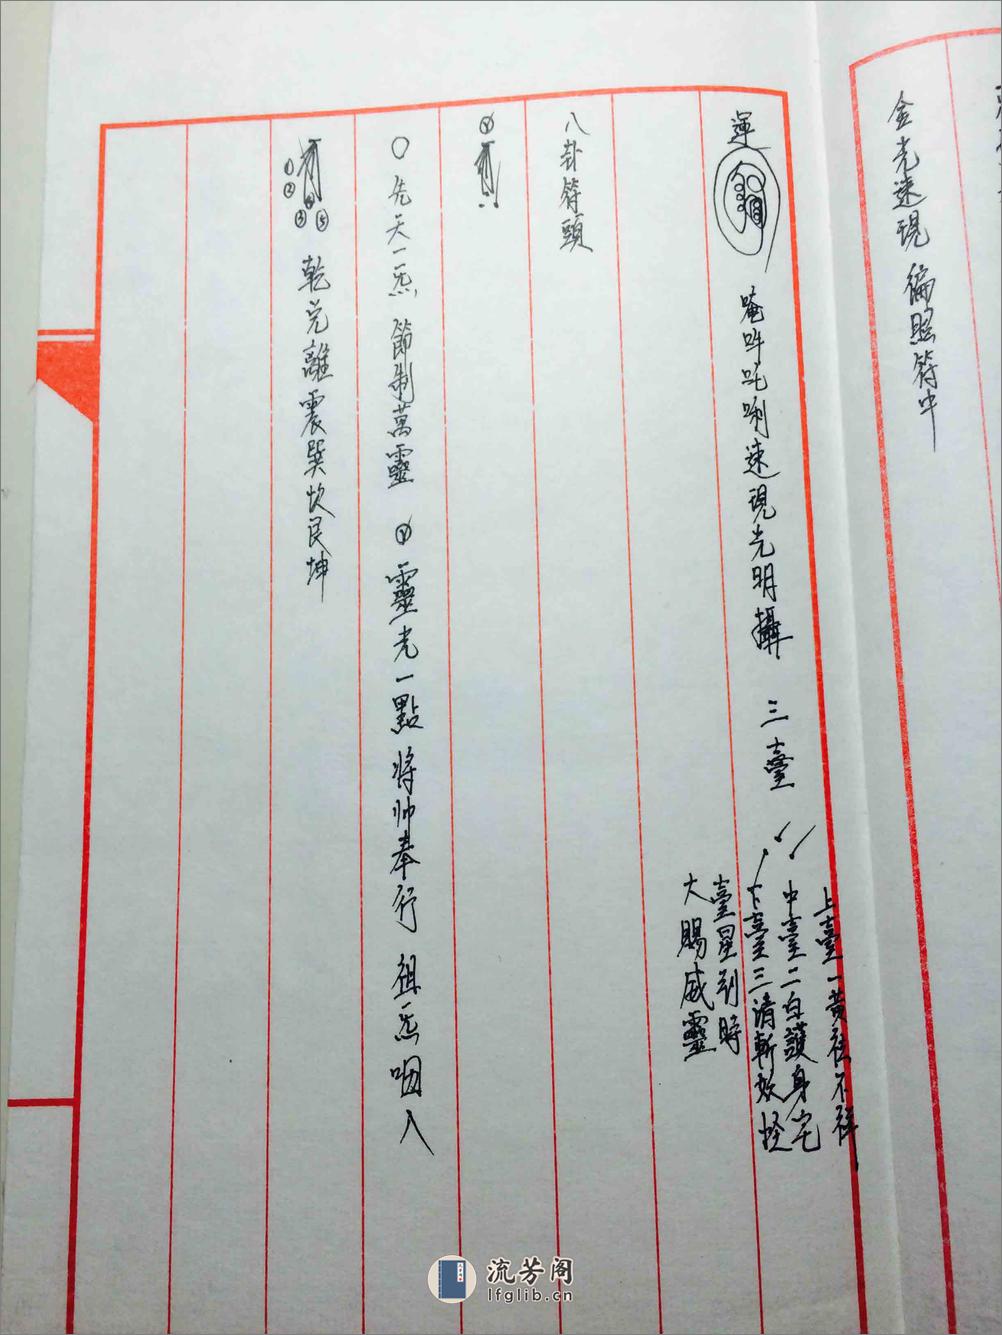 金光速現 徧照符中
運
唵吽吒唎速現光明攝 三臺
上臺一黃祛不祥
中臺二白護身宅
下臺三清斬妖怪
臺星到時
大賜威靈
八卦符頭
〇先天一炁 節制萬靈 靈光一點將帅奉行 祖炁咽入
①②③④⑤
乾兑離震巽坎艮坤
流芳阁
lfglib.cn